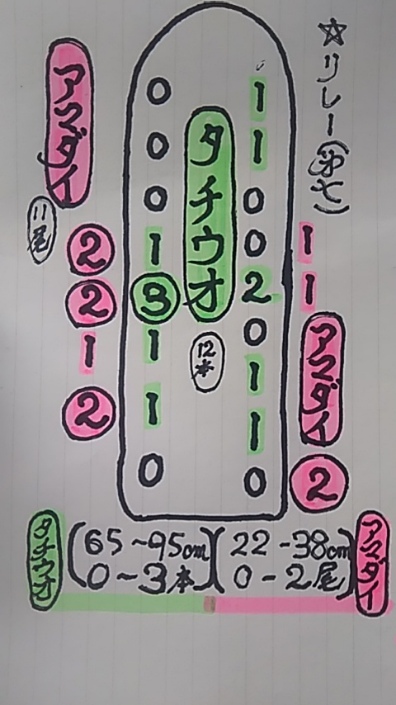 ☆リレー(第七)
アマダイ
11尾
2
2
1
2
0
0
0
1
3
1
1
0
タチウオ
12本
1
1
0
0
2
0
1
1
0
1
1
アマダイ
2
タチウオ
(65~95cm
0~3本)
(22-38cm
0-2尾)
アマダイ